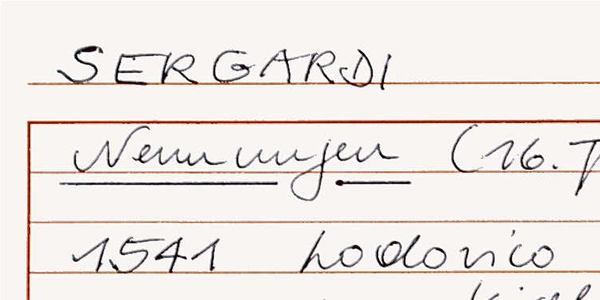 SERGARDI
Nennungen (16.
1541 Lodovico